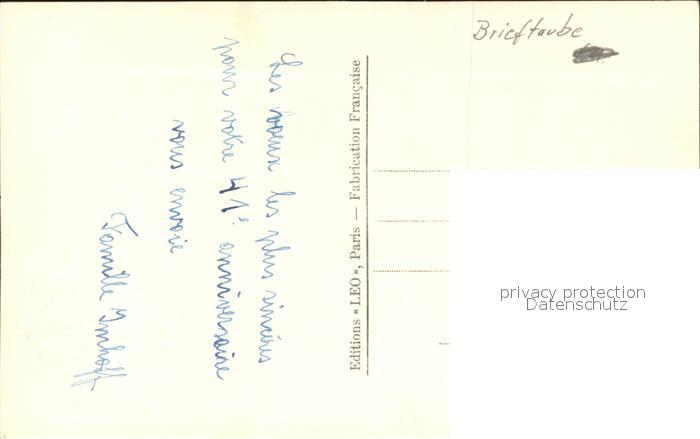 Brieftaube
Les voeux les plus sincères
pour votre 41e anniversaire
vous envoie
Famille Imhoff
Editions « LEO », Paris — Fabrication Française
privacy protection
Datenschutz